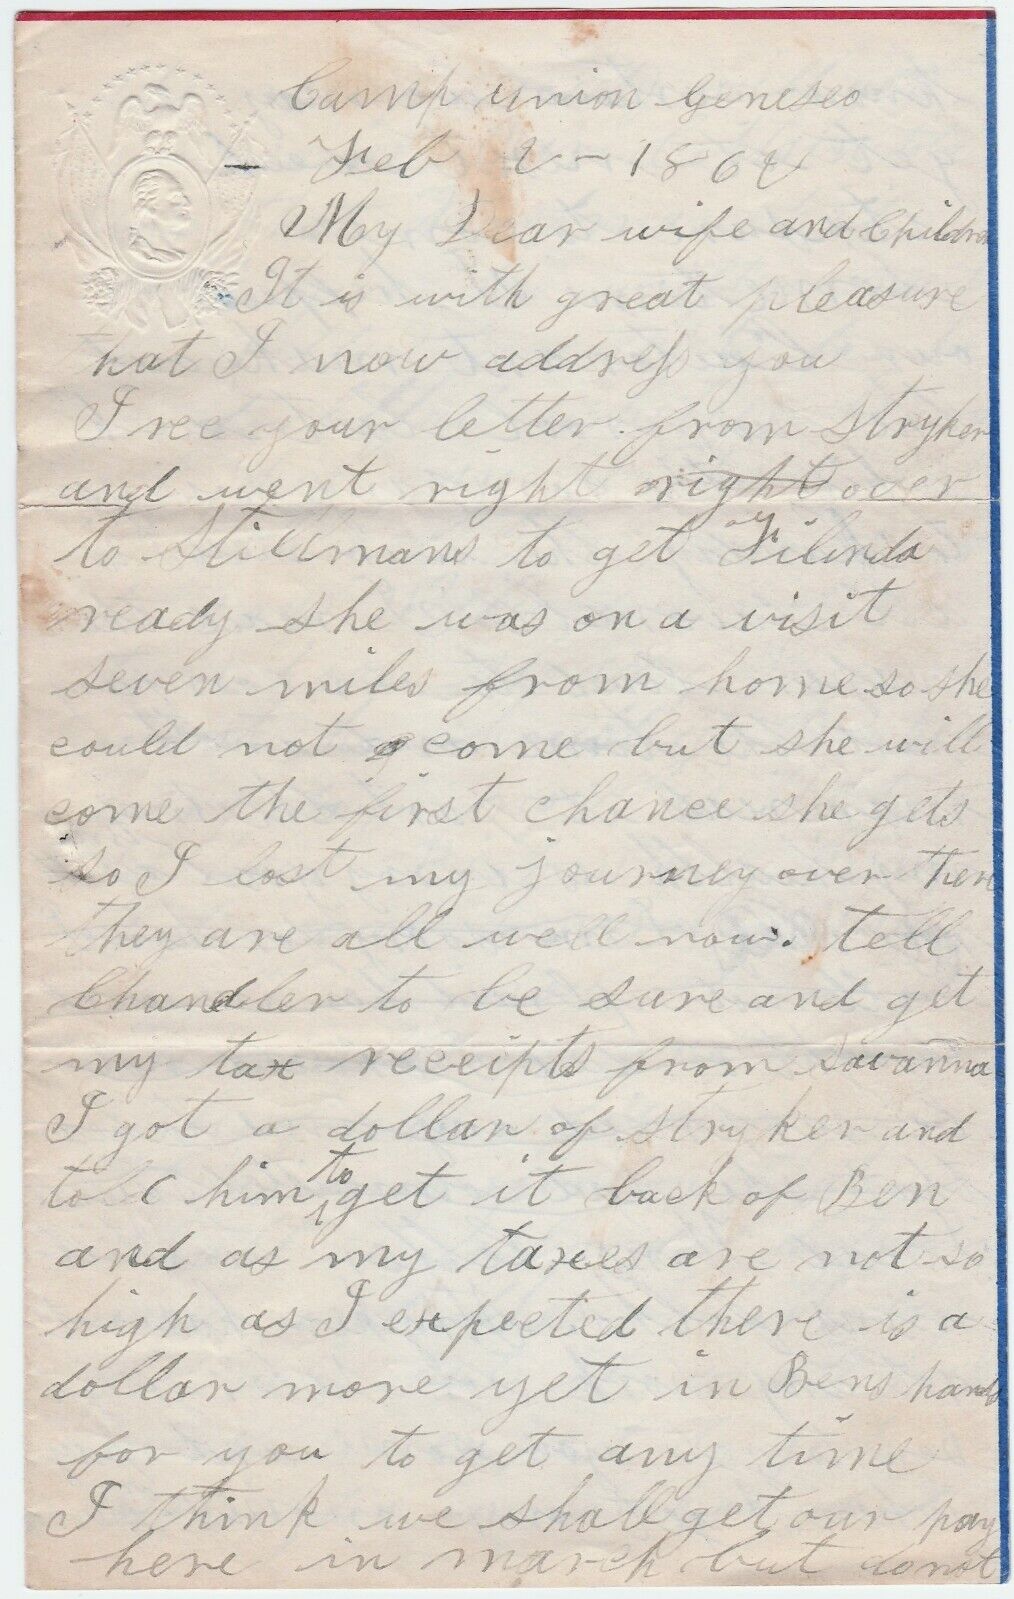 Camp union Geneseo
Feb 2 - 1862
My Dear wife and Children
It is with great pleasure
that I now address you
I rec your letter from Stryker
and went right right over
to Stillmans to get Filinda
ready she was on a visit
seven miles from home so she
could not come but she will
come the first chance she gets
so I lost my journey over there
they are all well now. tell
Chandler to be sure and get
my tax receipts from Savanna
I got a dollar of Stryker and
told him to get it back of Ben
and as my taxes are not so
high as I expected there is a
dollar more yet in Bens hands
for you to get any time
I think we shall get our pay
here in march but do not